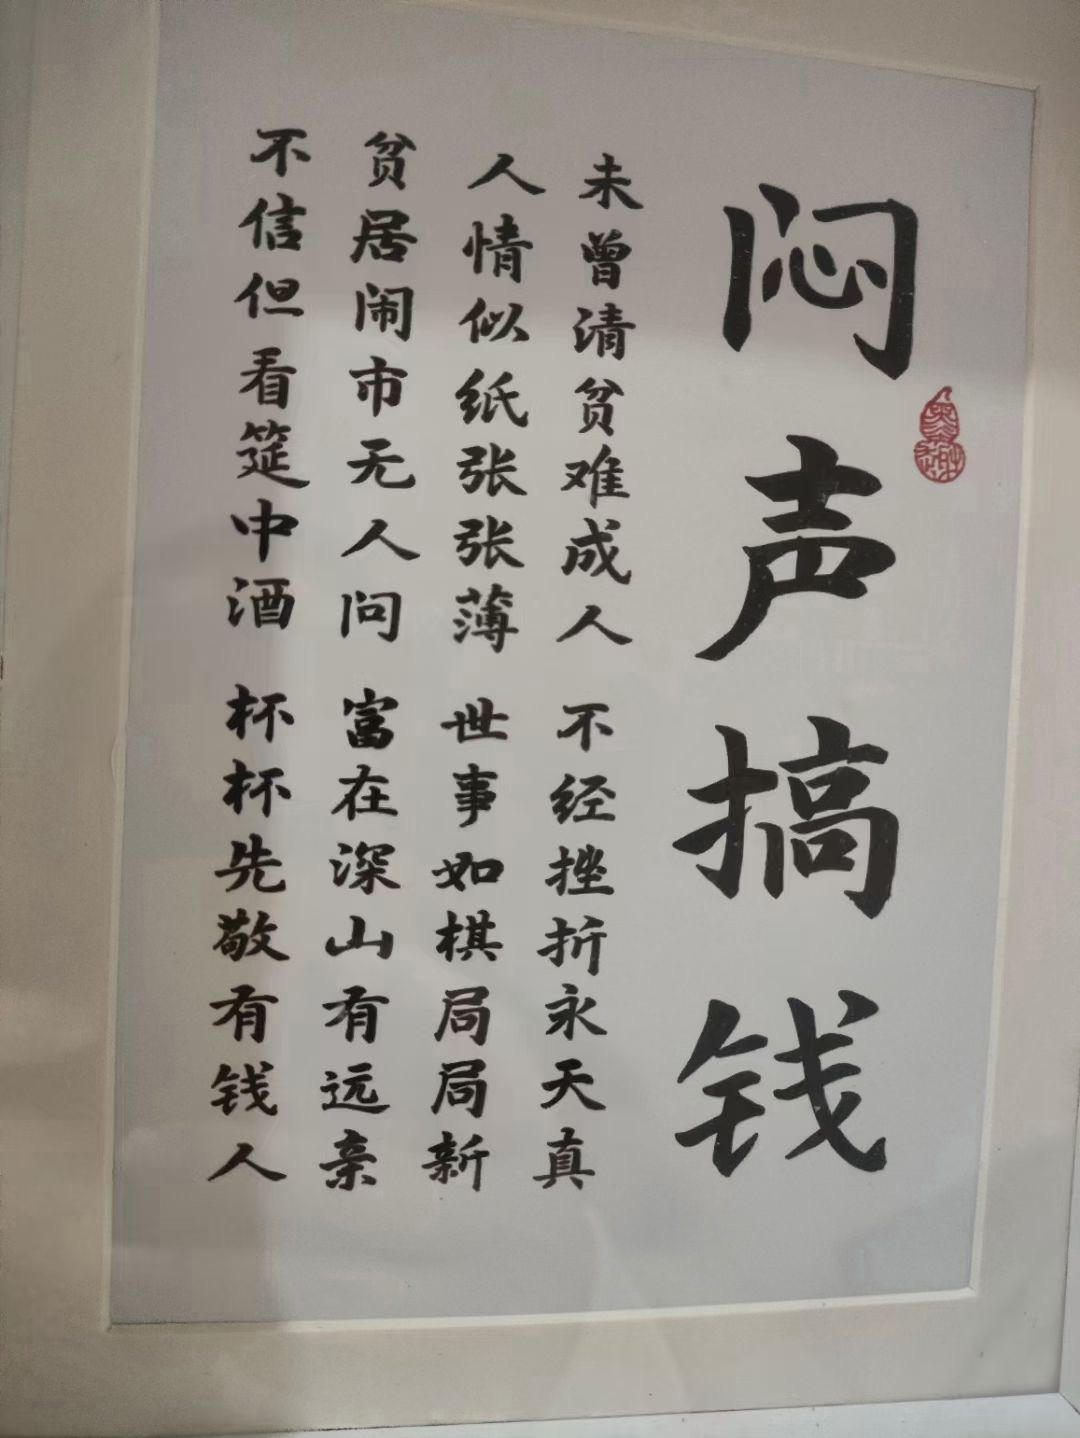 闷声搞钱
未曾清贫难成人 不经挫折永天真
人情似纸张张薄 世事如棋局局新
贫居闹市无人问 富在深山有远亲
不信但看筵中酒 杯杯先敬有钱人